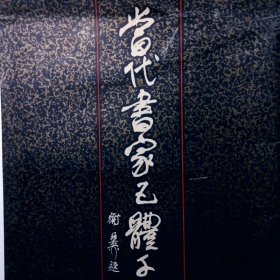 當代書家五體千
謝瑞題